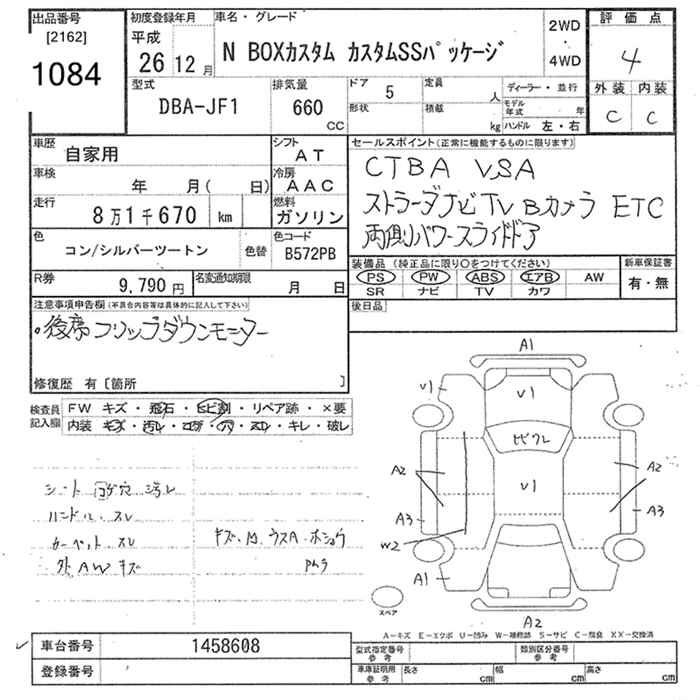 出品番号 初度登録年月 車名・グレード 評価点
[2162] 平成 2WD
1084 26 12月 N BOXカスタム カスタムSSパッケージ ・ 4
4WD
型式 排気量 ドア 定員 ディーラー・並行 外装 内装
DBA-JF1 660 CC 5 人 モデル年式 年 C C
形状 積載 kg ハンドル 左・右
車歴 自家用 シフト AT セールスポイント(正常に機能するものに限ります)
車検 年 月( 日) 冷房 AAC CTBA VSA
走行 8万1千670 km 燃料 ガソリン ストラーダナビTV Bカメラ ETC
色 コン/シルバーツートン 色替 色コード B572PB 両側パワースライドドア
R券 9,790円 名変通知期限 月 日 装備品(純正品に限り○をつけてください) 新車保証書
PS PW ABS エアB AW 有・無
SR ナビ TV カワ
注意事項申告欄(不具合内容等は具体的に記入して下さい) 後日品
。後席フリップダウンモニター
修復歴 有[箇所 ]
検査員記入欄 FW キズ・飛石・ヒビ割・リペア跡・×要
内装 キズ・汚レ・コゲ・穴・スレ・キレ・破レ
A1
V1 V1
ヒビワレ
A2 A2
V1
A3 A3
W2
A1
A2
シート コゲ穴 汚レ
ハンドル・スレ
カーペット・スレ キズ・凹・ウスA・ホシュウ
外AWキズ
スペア
A-キズ E-エクボ U-凹み W-補修跡 S-サビ C-腐食 XX-交換済
車台番号 1458608 型式指定番号 参考 類別区分番号 参考
登録番号 車庫証明用 参考 長さ cm 幅 cm 高さ cm